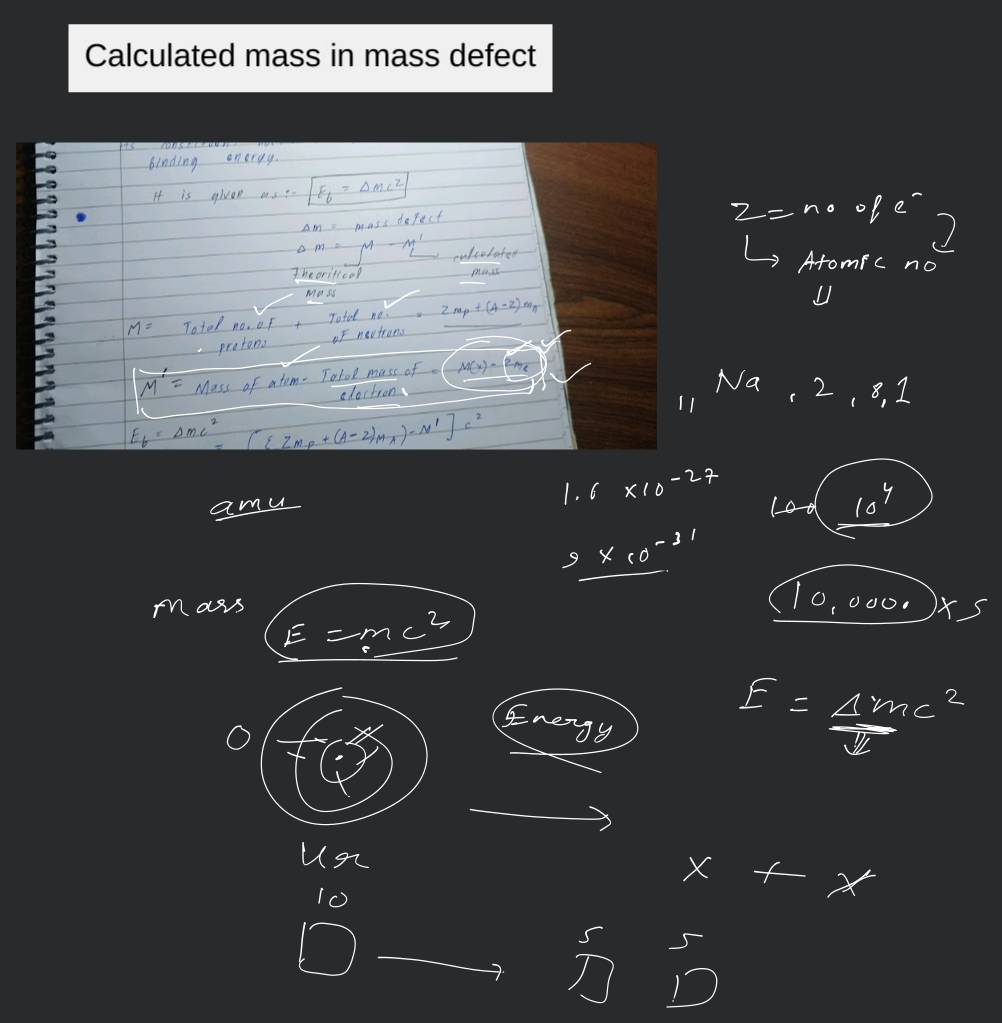 Calculated mass in mass defect
binding energy.
It is given as:- E_b = Δmc²
Δm = mass defect
Δm = M - M'
Theoritical mass
calculated mass
M = Total no. of protons + Total no. of neutrons = Zmp + (A-Z)mn
M' = Mass of atom - Total mass of electron = M(x) - Zme
E_b = Δmc²
= [{Zmp + (A-Z)mn} - M'] c²
Z = no of e⁻
↳ Atomic no
⇓
11 Na , 2 , 8,1
amu
1.6 ×10⁻²⁷
9 × 10⁻³¹
100 10⁴
10,000. × 5
mass
E = mc²
E = Δmc²
O
Energy
10
X + X
5 5